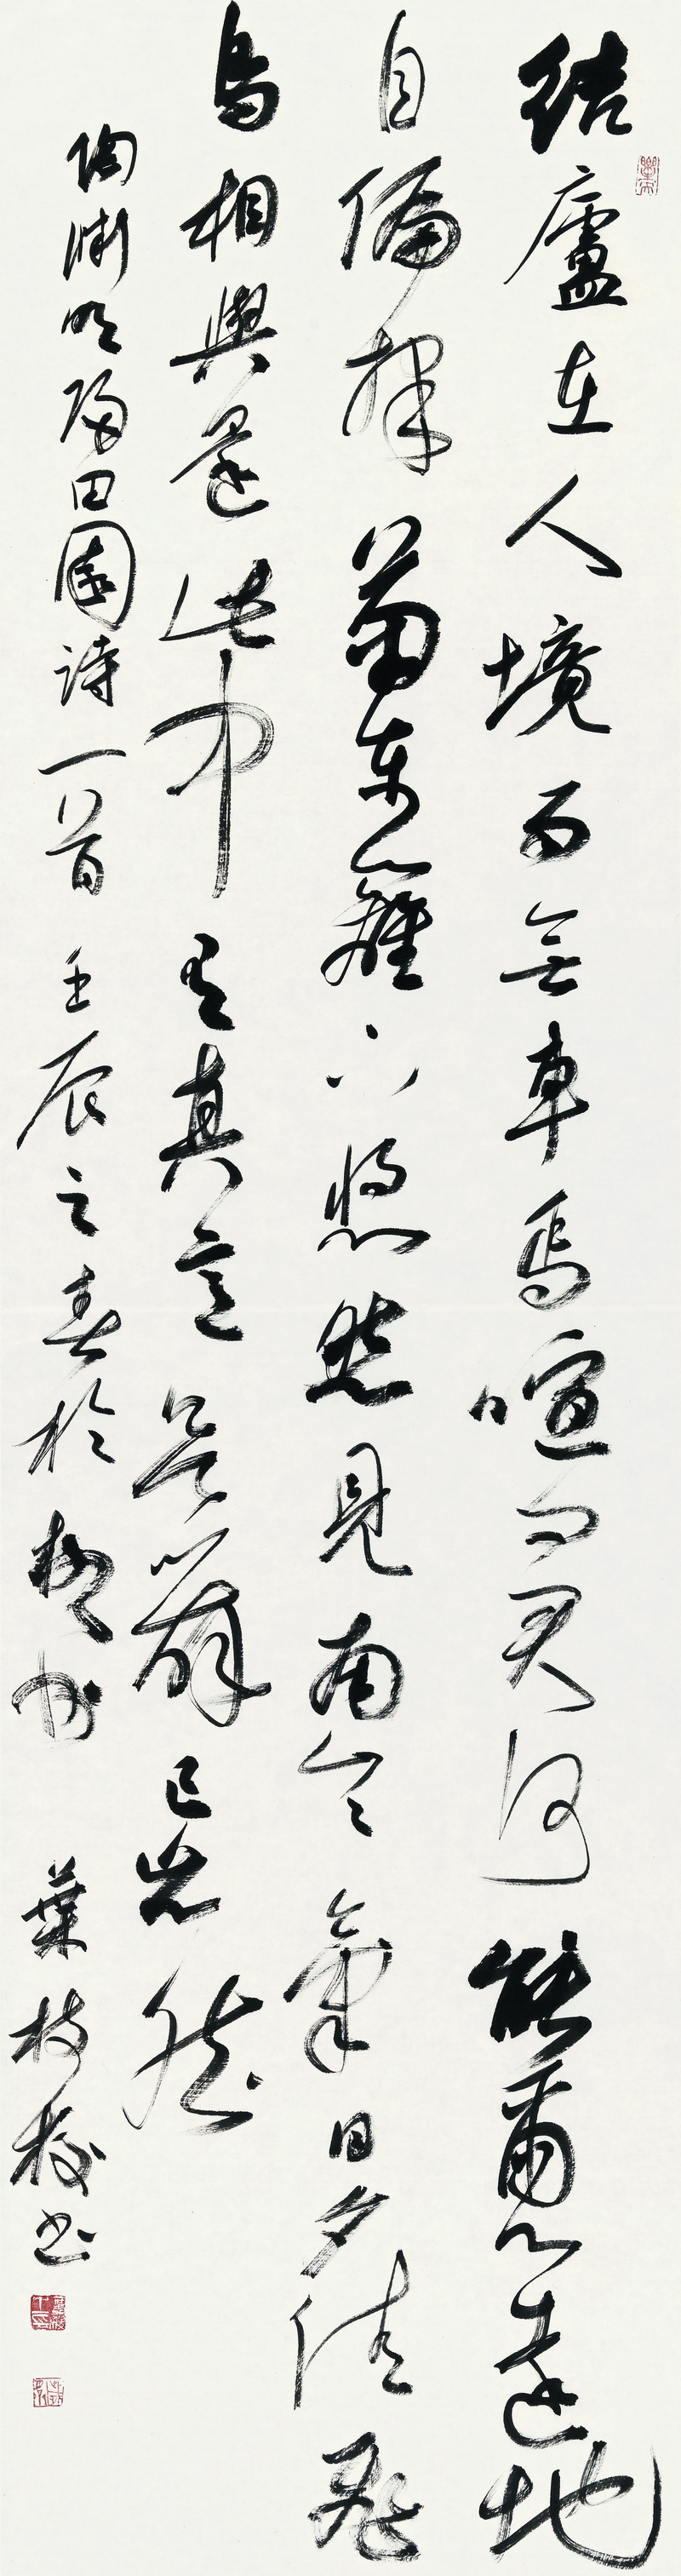 結廬在人境而無車馬喧問君何能爾心遠地
自偏採菊東籬下悠然見南山々氣日夕佳飛
鳥相與還此中有真意已忘
陶淵明歸田園詩一首壬辰之春於葉枝書